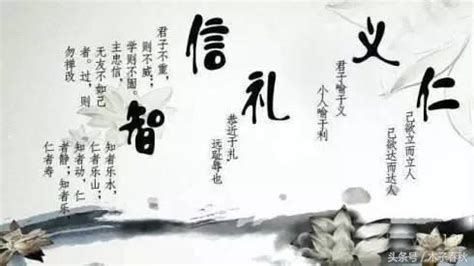 仁
己欲立而立人
己欲达而达人
义
君子喻于义
小人喻于利
礼
恭近于礼,
远耻辱也
信
君子不重,
则不威;
学则不固。
主忠信,
无友不如己
者。过,则
勿惮改
智
知者乐水,
仁者乐山;
知者动,仁
者静;知者乐
仁者寿
头条号/木子春秋